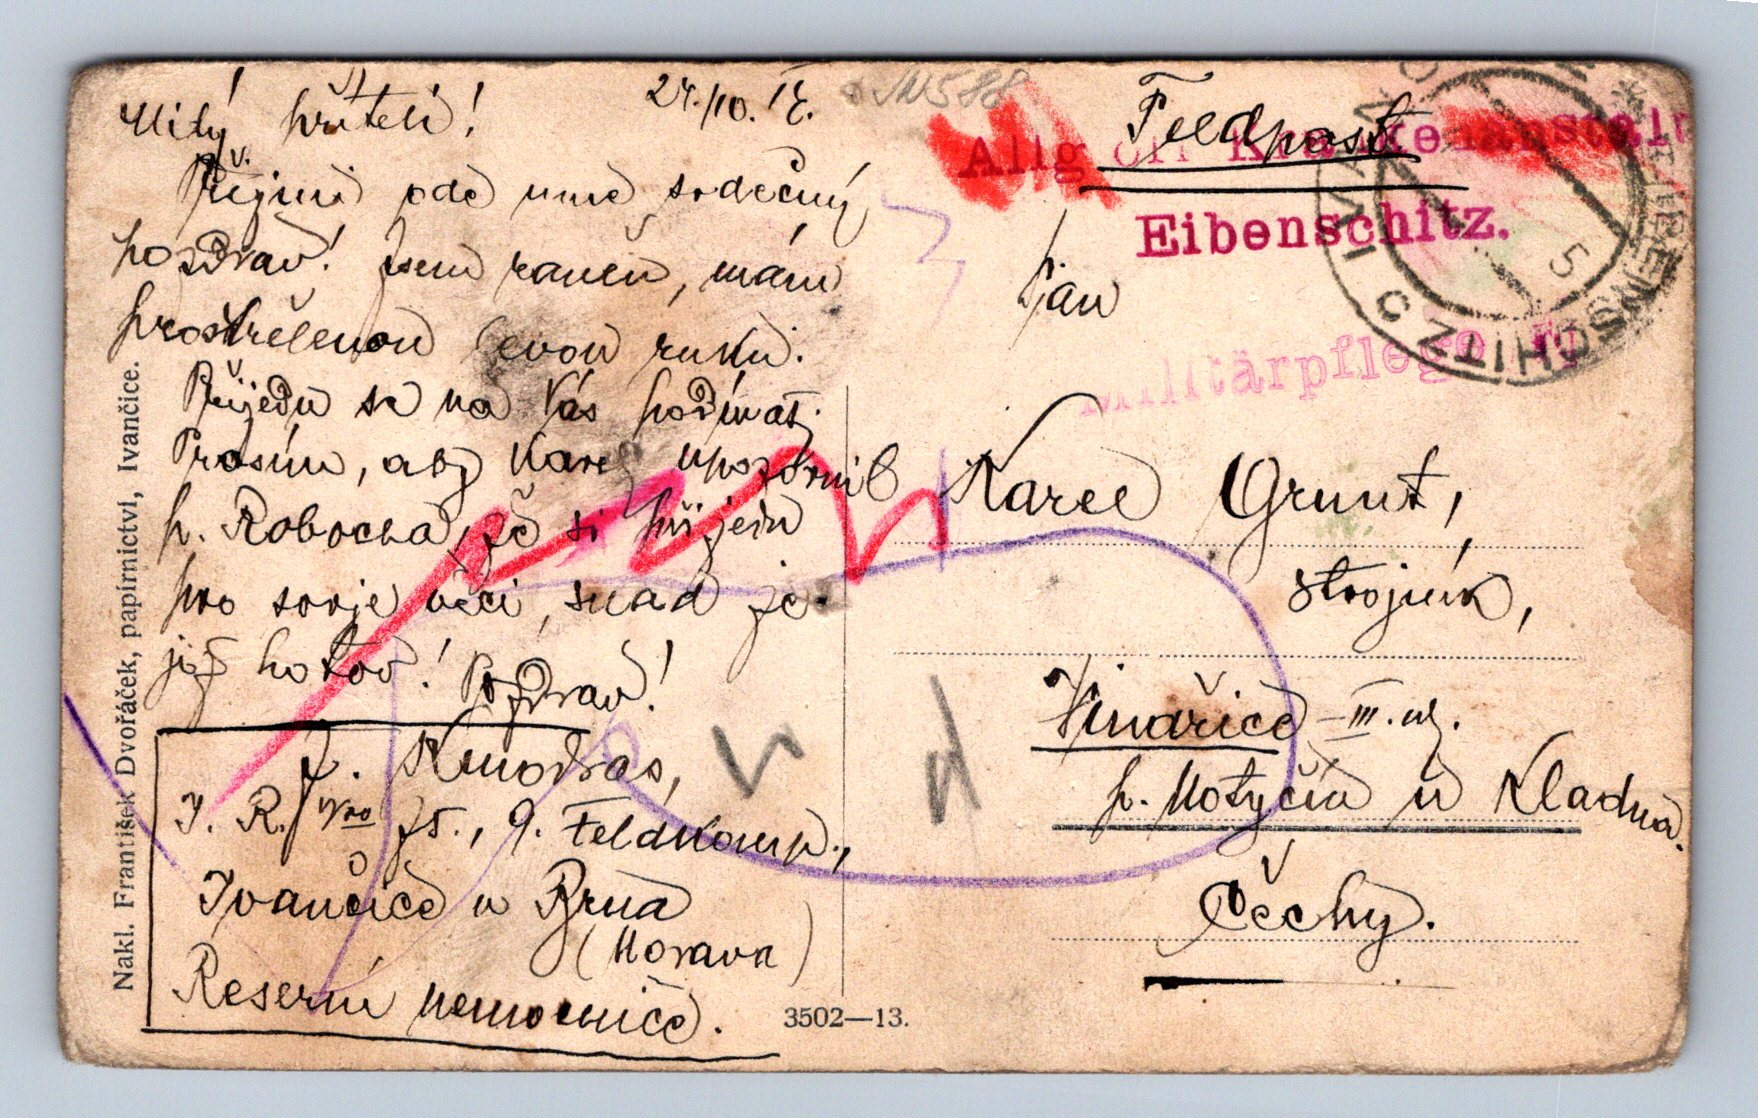 Milý příteli!
24./10. 14.
Přijmi ode mne srdečný
pozdrav! Jsem raněn, mám
prostřelenou levou ruku.
Přijedu se na Vás podívat.
Prosím, aby Karel upozornil
p. Robocha, že si přijedu
pro svoje věci, snad je
již hotov! Pozdrav!
J.
I. R. Nro 75., 9. Feldkomp.,
Ivančice u Brna
(Morava)
Reservní nemocnice.
Nakl. František Dvořáček, papírnictví, Ivančice.
3502—13.
Feldpost
Allg. öff. Krankenanstalt
Eibenschitz.
Militärpflege
EIBENSCHITZ
IVANČ
5
Pan
Karel Grunt,
strojník,
Vinařice III.
p. Motyčín u Kladna.
Čechy.